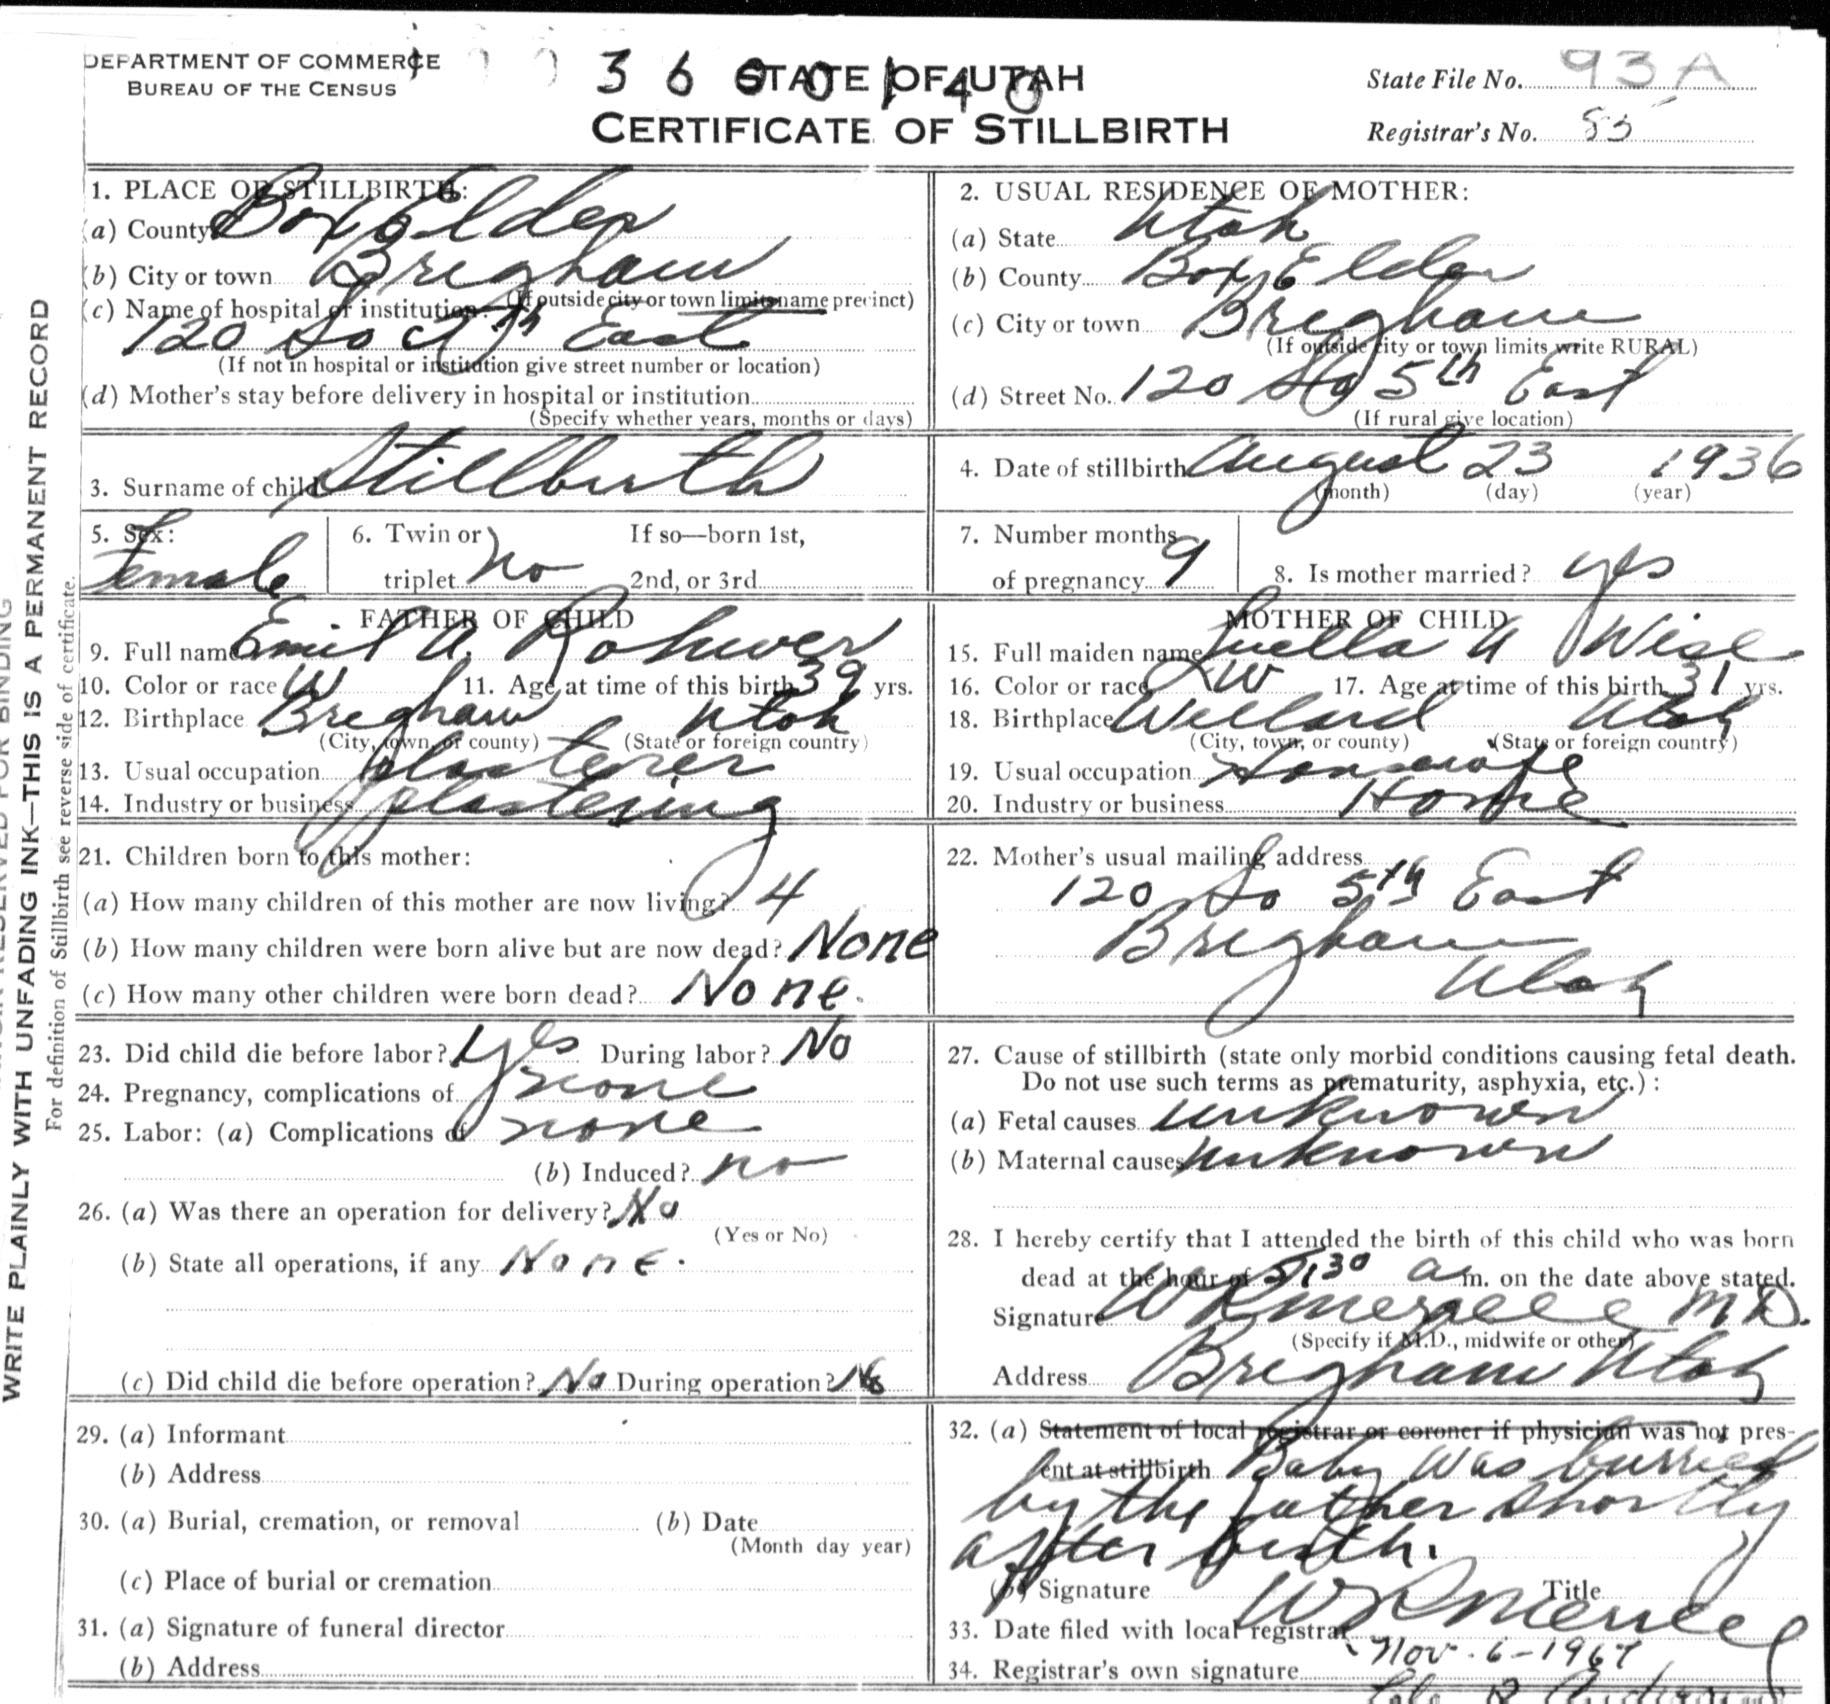 DEPARTMENT OF COMMERCE
BUREAU OF THE CENSUS
3 6 0 0 1 4 0
STATE OF UTAH
CERTIFICATE OF STILLBIRTH
State File No. 93A
Registrar's No. 85
WRITE PLAINLY WITH UNFADING INK—THIS IS A PERMANENT RECORD
For definition of Stillbirth see reverse side of certificate.
1. PLACE OF STILLBIRTH:
(a) County Box Elder
(b) City or town Brigham
(If outside city or town limits name precinct)
(c) Name of hospital or institution
120 So 5th East
(If not in hospital or institution give street number or location)
(d) Mother's stay before delivery in hospital or institution
(Specify whether years, months or days)
2. USUAL RESIDENCE OF MOTHER:
(a) State Utah
(b) County Box Elder
(c) City or town Brigham
(If outside city or town limits write RURAL)
(d) Street No. 120 So 5th East
(If rural give location)
3. Surname of child Stillbirth
4. Date of stillbirth August 23 1936
(month) (day) (year)
5. Sex: Female
6. Twin or triplet No If so—born 1st, 2nd, or 3rd
7. Number months of pregnancy 9
8. Is mother married? yes
FATHER OF CHILD
9. Full name Emil A. Rohwer
10. Color or race W 11. Age at time of this birth 39 yrs.
12. Birthplace Brigham Utah
(City, town, or county) (State or foreign country)
13. Usual occupation plasterer
14. Industry or business plastering
MOTHER OF CHILD
15. Full maiden name Luella A Wise
16. Color or race W 17. Age at time of this birth 31 yrs.
18. Birthplace Willard Utah
(City, town, or county) (State or foreign country)
19. Usual occupation Housewife
20. Industry or business Home
21. Children born to this mother:
(a) How many children of this mother are now living? 4
(b) How many children were born alive but are now dead? None
(c) How many other children were born dead? None.
22. Mother's usual mailing address
120 So 5th East
Brigham
Utah
23. Did child die before labor? Yes During labor? No
24. Pregnancy, complications of none
25. Labor: (a) Complications of none
(b) Induced? no
26. (a) Was there an operation for delivery? No
(Yes or No)
(b) State all operations, if any None.
(c) Did child die before operation? No During operation? No
27. Cause of stillbirth (state only morbid conditions causing fetal death.
Do not use such terms as prematurity, asphyxia, etc.):
(a) Fetal causes unknown
(b) Maternal causes unknown
28. I hereby certify that I attended the birth of this child who was born
dead at the hour of 5:30 a m. on the date above stated.
Signature W R Merrell M D.
(Specify if M.D., midwife or other)
Address Brigham Utah
29. (a) Informant
(b) Address
30. (a) Burial, cremation, or removal (b) Date
(Month day year)
(c) Place of burial or cremation
31. (a) Signature of funeral director
(b) Address
32. (a) Statement of local registrar or coroner if physician was not pres-
ent at stillbirth Baby was burried
by the father shortly
after birth.
(b) Signature W R Merrell Title
33. Date filed with local registrar Nov. 6-1967
34. Registrar's own signature